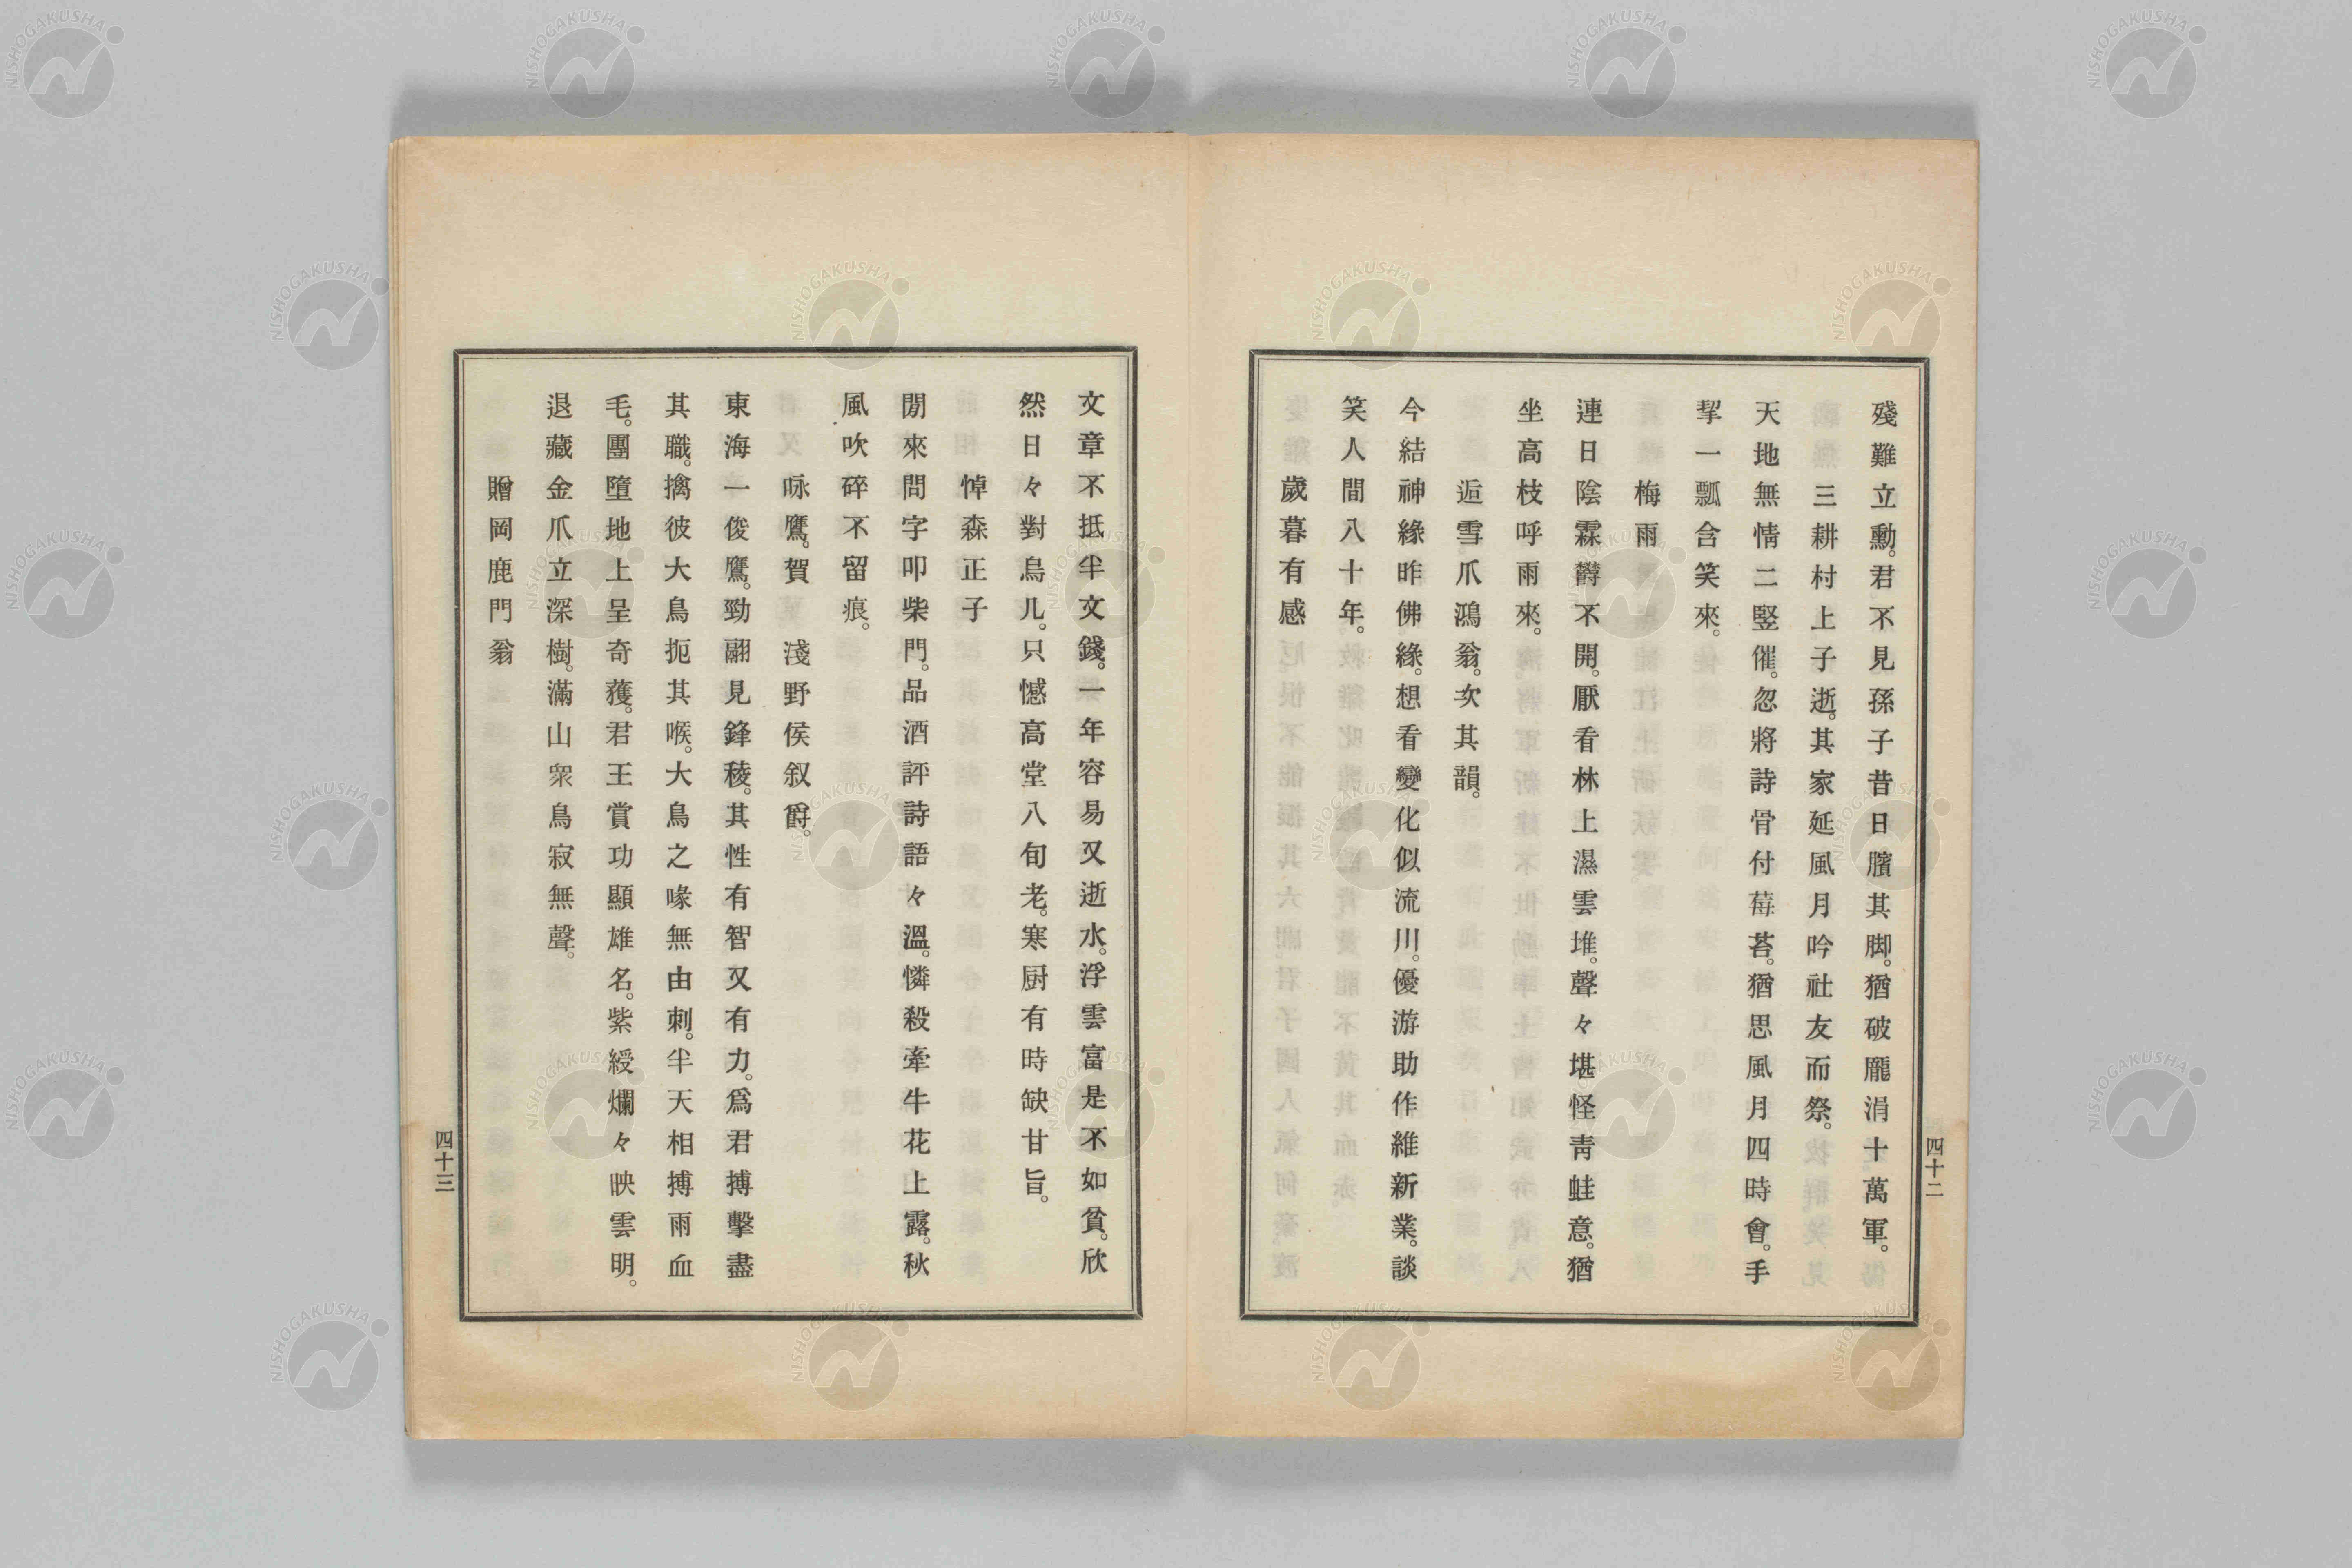 殘難立勳。君不見孫子昔日臏其脚。猶破龐涓十萬軍。
三耕村上子逝。其家延風月吟社友而祭。
天地無情二竪催。忽將詩骨付莓苔。猶思風月四時會。手
挈一瓢含笑來。
梅雨
連日陰霖欝不開。厭看林上濕雲堆。聲々堪怪靑蛙意。猶
坐高枝呼雨來。
逅雪爪鴻翁。次其韻。
今結神緣昨佛緣。想看變化似流川。優游助作維新業。談
笑人間八十年。
歲暮有感
四十二
文章不抵半文錢。一年容易又逝水。浮雲富是不如貧。欣
然日々對烏几。只憾高堂八旬老。寒厨有時缺甘旨。
悼森正子
閒來問字叩柴門。品酒評詩語々溫。憐殺牽牛花上露。秋
風吹碎不留痕。
咏鷹。賀淺野侯叙爵。
東海一俊鷹。勁翮見鋒稜。其性有智又有力。爲君搏擊盡
其職。擒彼大鳥扼其喉。大鳥之喙無由刺。半天相搏雨血
毛。團墮地上呈奇獲。君王賞功顯雄名。紫綬爛々映雲明。
退藏金爪立深樹。滿山衆鳥寂無聲。
贈岡鹿門翁
四十三
NISHOGAKUSHA